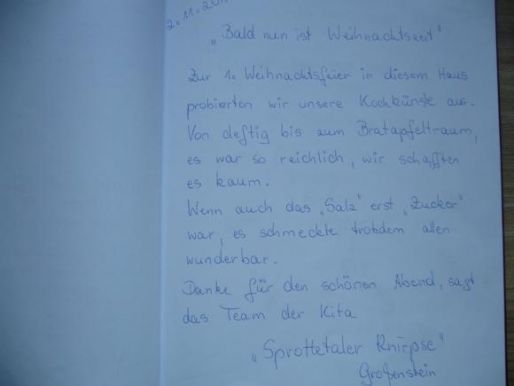 „Bald nun ist Weihnachtszeit"
Zur 1. Weihnachtsfeier in diesem Haus
probierten wir unsere Kochkünste aus.
Von deftig bis zum Bratapfeltraum,
es war so reichlich, wir schafften
es kaum.
Wenn auch das „Salz" erst „Zucker"
war, es schmeckte trotzdem allen
wunderbar.
Danke für den schönen Abend, sagt
das Team der Kita
„Sprottetaler Knirpse"
Großenstein